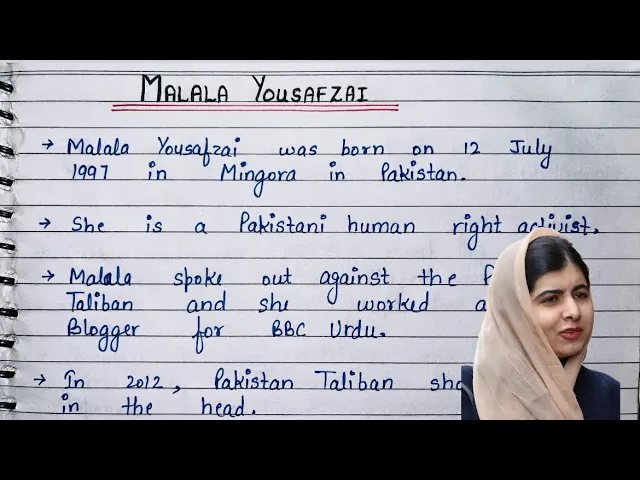 MALALA YOUSAFZAI
→ Malala Yousafzai was born on 12 July
1997 in Mingora in Pakistan.
→ She is a Pakistani human right activist.
→ Malala spoke out against the
Taliban and she worked
Blogger for BBC Urdu.
→ In 2012, Pakistan Taliban
in the head.